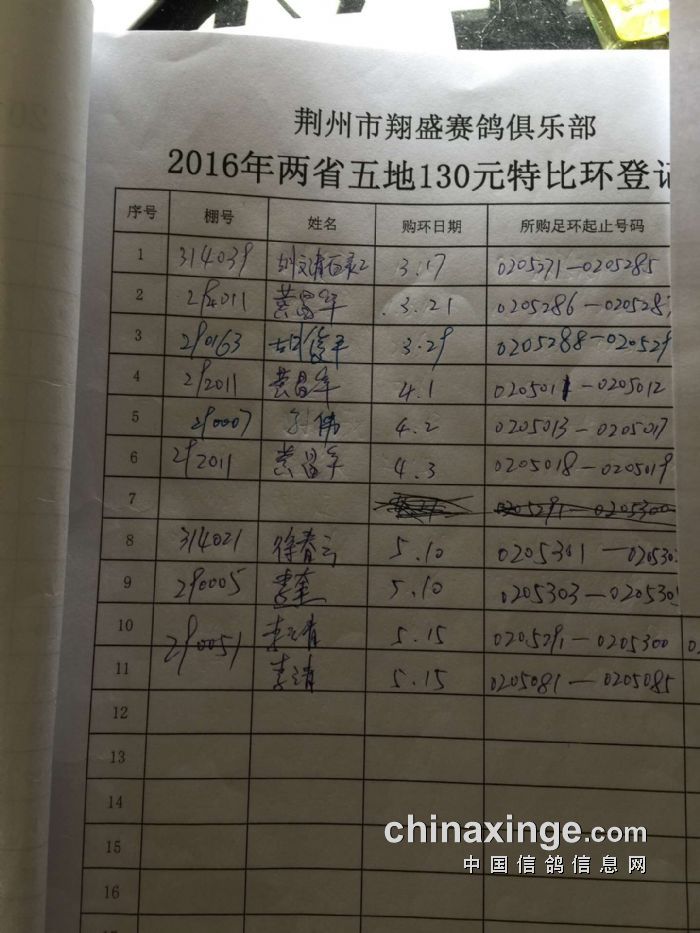 荆州市翔盛赛鸽俱乐部
2016年两省五地130元特比环登记
序号 棚号 姓名 购环日期 所购足环起止号码
1 314039 3.17 0205271—0205285
2 292011 黄昌军 3.21 0205286—020528
3 290163 3.29 0205288—020529
4 292011 黄昌军 4.1 0205011—0205012
5 290007 伟 4.2 0205013—0205017
6 292011 黄昌军 4.3 0205018—0205019
7 0205291—0205300
8 314021 徐春云 5.10 0205301—020530
9 290005 李奎 5.10 0205303—020530
10 290051 李 5.15 0205291—0205300
11 李靖 5.15 0205081—0205085
12
13
14
15
16
chinaxinge.com
中国信鸽信息网